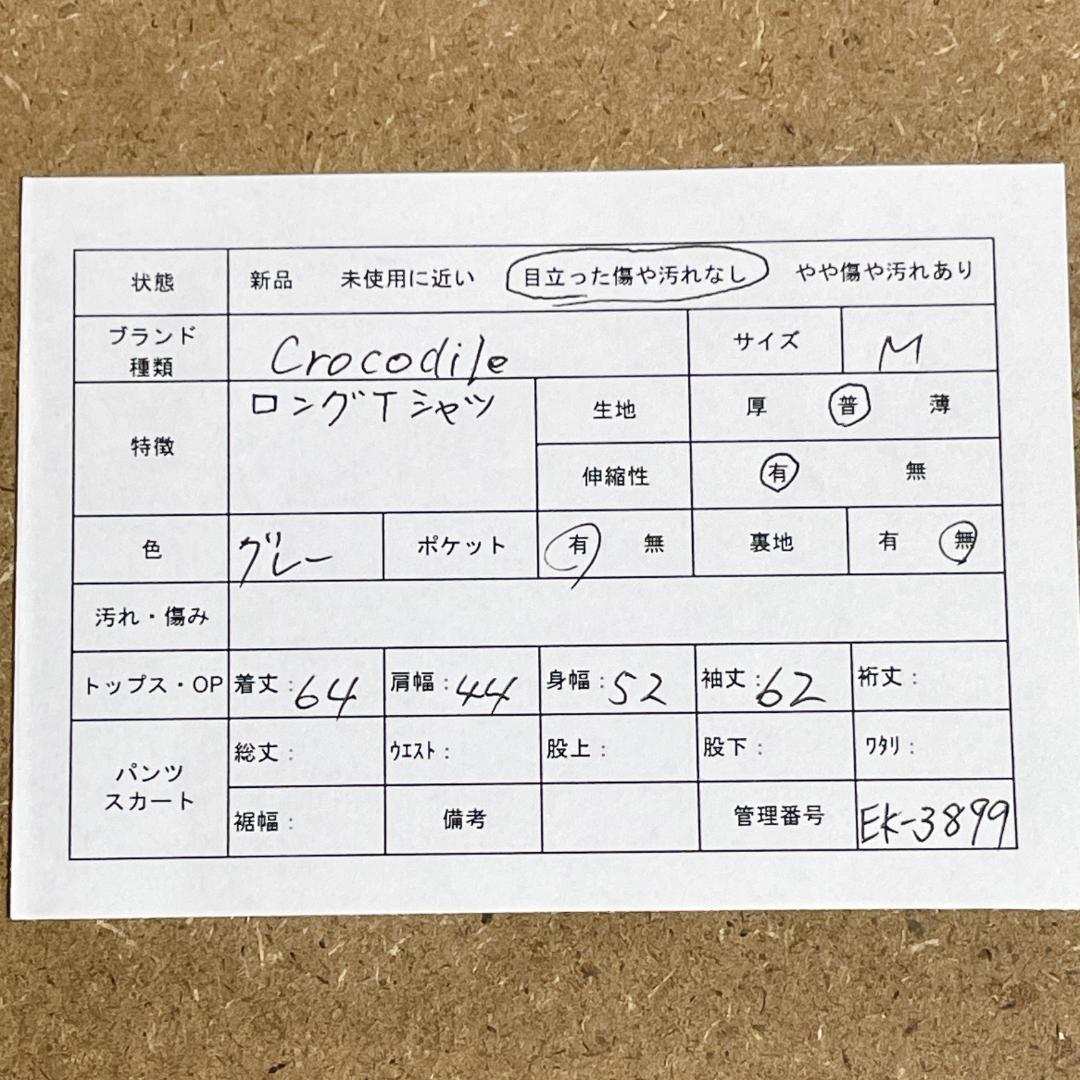 状態 新品 未使用に近い 目立った傷や汚れなし やや傷や汚れあり
ブランド
種類 Crocodile サイズ M
特徴 ロングTシャツ 生地 厚 普 薄
伸縮性 有 無
色 グレー ポケット 有 無 裏地 有 無
汚れ・傷み
トップス・OP 着丈:64 肩幅:44 身幅:52 袖丈:62 裄丈:
パンツ
スカート 総丈: ウエスト: 股上: 股下: ワタリ:
裾幅: 備考 管理番号 EK-3899